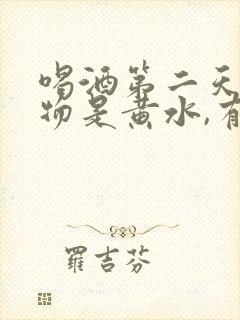 喝酒第二天
物是黄水,有
羅吉芬